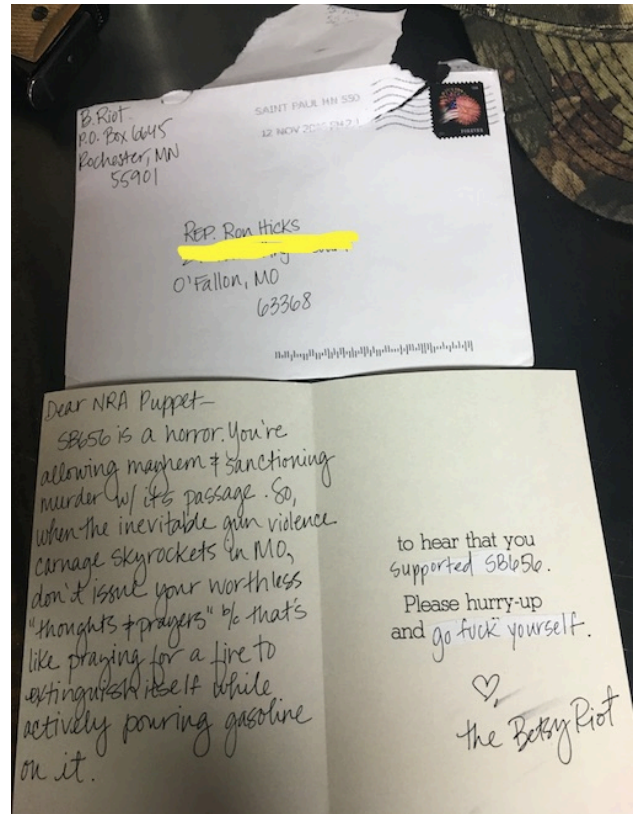 B. Riot
P.O. Box 6645
Rochester, MN
55901
SAINT PAUL MN 550
12 NOV
REP. Ron Hicks
O'Fallon, MO
63368
FOREVER
Dear NRA Puppet—
SB656 is a horror. You're
allowing mayhem & sanctioning
murder w/ its passage. So,
when the inevitable gun violence
carnage skyrockets in MO,
don't issue your worthless
"thoughts & prayers" b/c that's
like praying for a fire to
extinguish itself while
actively pouring gasoline
on it.
to hear that you
supported SB656.
Please hurry-up
and go fuck yourself.
the Betsy Riot